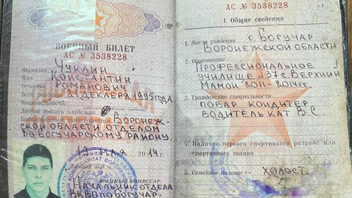 АС № 3538228
ВОЕННЫЙ БИЛЕТ
АС № 3538228
Фамилия ЧУКЛИН
КОНСТАНТИН
РОМАНОВИЧ
ДЕКАБРЯ 1995 ГОДА
ВОРОНЕЖ-
СКОЙ ОБЛАСТИ ОТДЕЛОМ
РАЙОНУ
2014 г.
НАЧАЛЬНИК ОТДЕЛА
АС № 3538228
I. Общие сведения
1. Место рождения г. БОГУЧАР
ВОРОНЕЖСКОЙ ОБЛАСТИ
2. Образование
ПРОФЕССИОНАЛЬНОЕ
УЧИЛИЩЕ №37 с. ВЕРХНИЙ
МАМОН 2011-2014 гг.
3. Гражданские специальности
ПОВАР, КОНДИТЕР
ВОДИТЕЛЬ КАТ. В, С
4. Наличие первого спортивного разряда или
спортивного звания
5. Семейное положение ХОЛОСТ